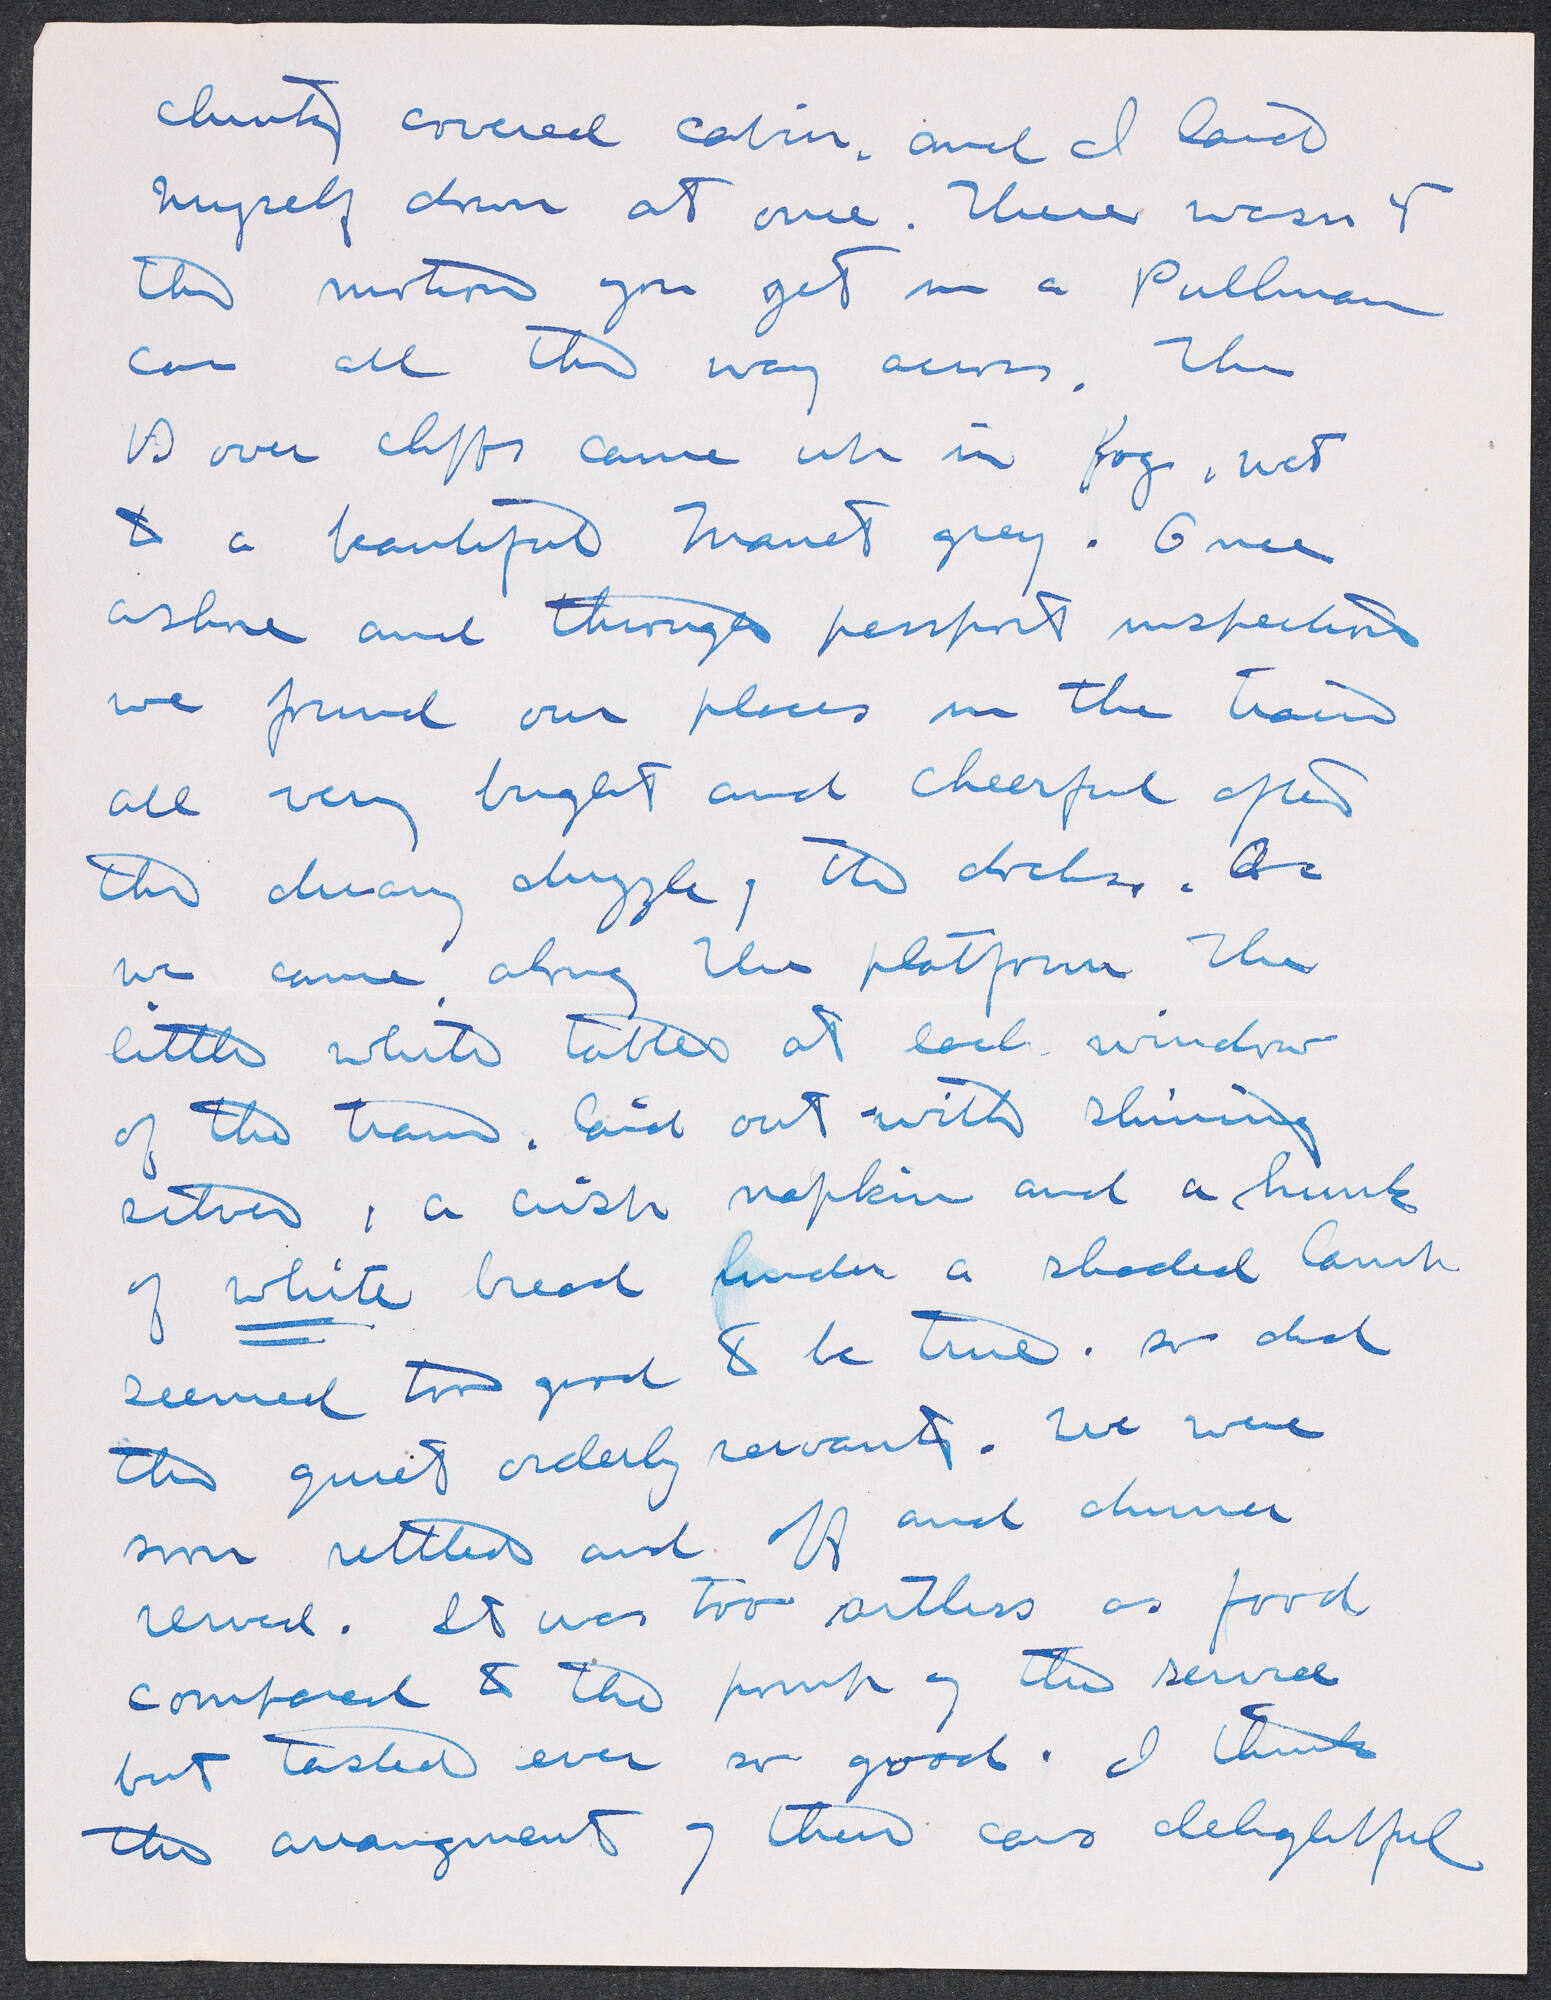 chintz covered cabin. and I laid
myself down at once. There wasn't
the motion you get in a Pullman
car all the way across. The
Dover cliffs came up in fog, wet
& a beautiful Manet grey. Once
ashore and through passport inspection
we found our places in the train
all very bright and cheerful after
the dreary drizzle of the docks. As
we came along the platform the
little white tables at each window
of the train. laid out with shining
silver, a crisp napkin and a hunk
of white bread under a shaded lamp
seemed too good to be true. so did
the quiet orderly servants. We were
soon settled and off and dinner
served. It was too artless as food
compared to the pomp of the service
but tasted ever so good. I think
the arrangment of their cars delightful